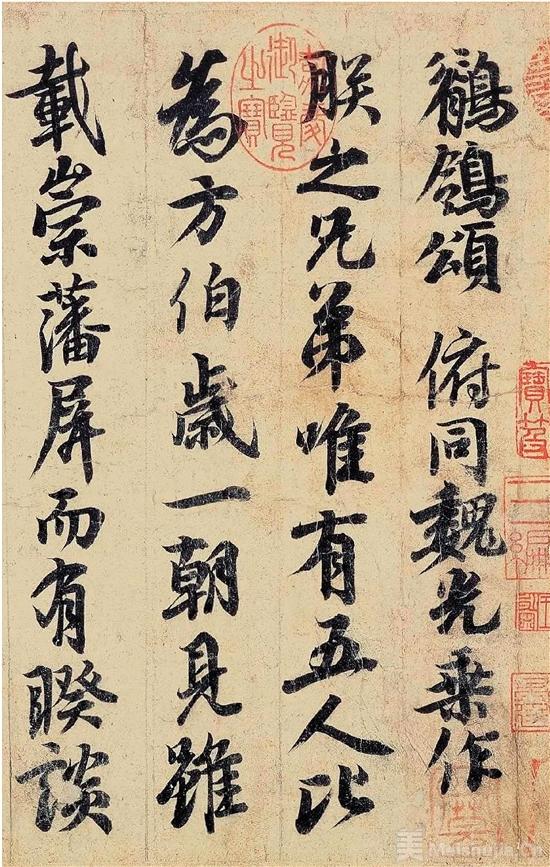 鶺鴒頌 俯同魏光乗作
朕之兄弟唯有五人比
為方伯歳一朝見雖
載崇藩屏而有睽談
嘉慶御覽之寶
寶笈三編
美 Meishujia.Cn